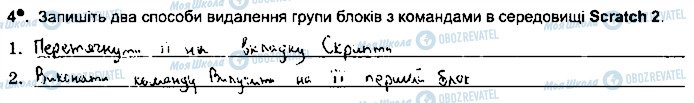 4. Запишіть два способи видалення групи блоків з командами в середовищі Scratch 2.
1. Перетягнути її на вкладку Скрипти
2. Виконати команду Вилучити на її перший блок